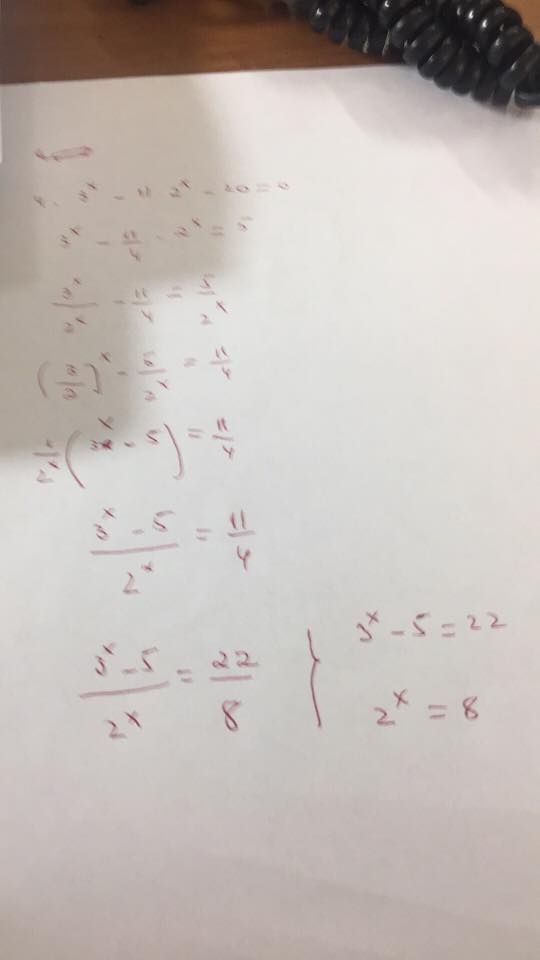 4 · 3^x - 11 2^x - 20 = 0
3^x - 11/4 · 2^x = 5
3^x/2^x - 11/4 = 5/2^x
(3/2)^x - 5/2^x = 11/4
1/2^x (3^x - 5) = 11/4
(3^x - 5)/2^x = 11/4
(3^x - 5)/2^x = 22/8 } 3^x - 5 = 22
2^x = 8